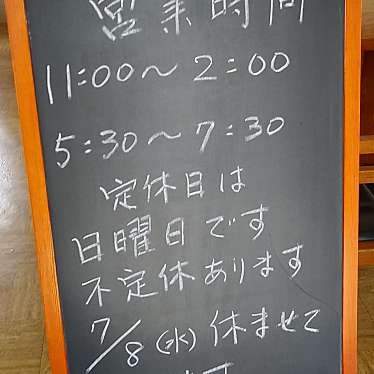 営業時間
11:00～2:00
5:30～7:30
定休日は
日曜日です
不定休あります
7/8(水)休ませて